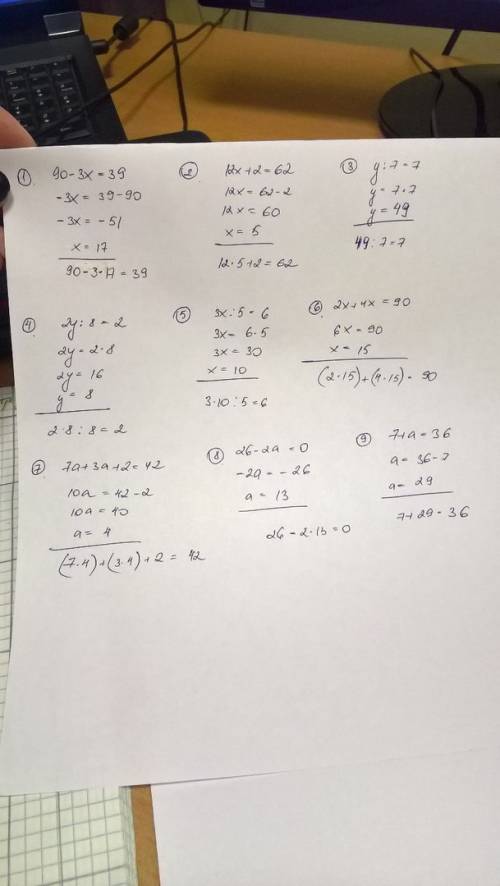 ① 90-3x=39
-3x=39-90
-3x=-51
x=17
90-3·17=39
② 12x+2=62
12x=62-2
12x=60
x=5
12·5+2=62
③ y:7=7
y=7·7
y=49
49:7=7
④ 2y:8=2
2y=2·8
2y=16
y=8
2·8:8=2
⑤ 3x:5=6
3x=6·5
3x=30
x=10
3·10:5=6
⑥ 2x+4x=90
6x=90
x=15
(2·15)+(4·15)=90
⑦ 7a+3a+2=42
10a=42-2
10a=40
a=4
(7·4)+(3·4)+2=42
⑧ 26-2a=0
-2a=-26
a=13
26-2·13=0
⑨ 7+a=36
a=36-7
a=29
7+29=36